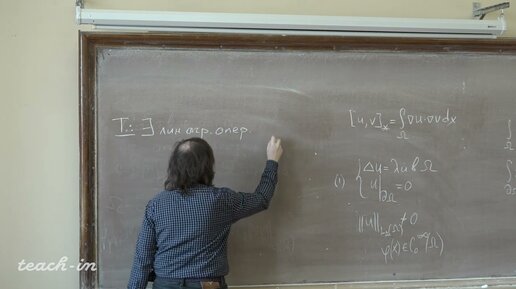 Т.: ∃ лин огр. опер.
[u,v]_x = ∫_Ω ∇u·∇v dx
(1) { Δu = λu в Ω
u|_∂Ω = 0
‖u‖_{L₂(Ω)} ≠ 0
φ(x) ∈ C₀^∞(Ω)
∫_Ω
teach-in